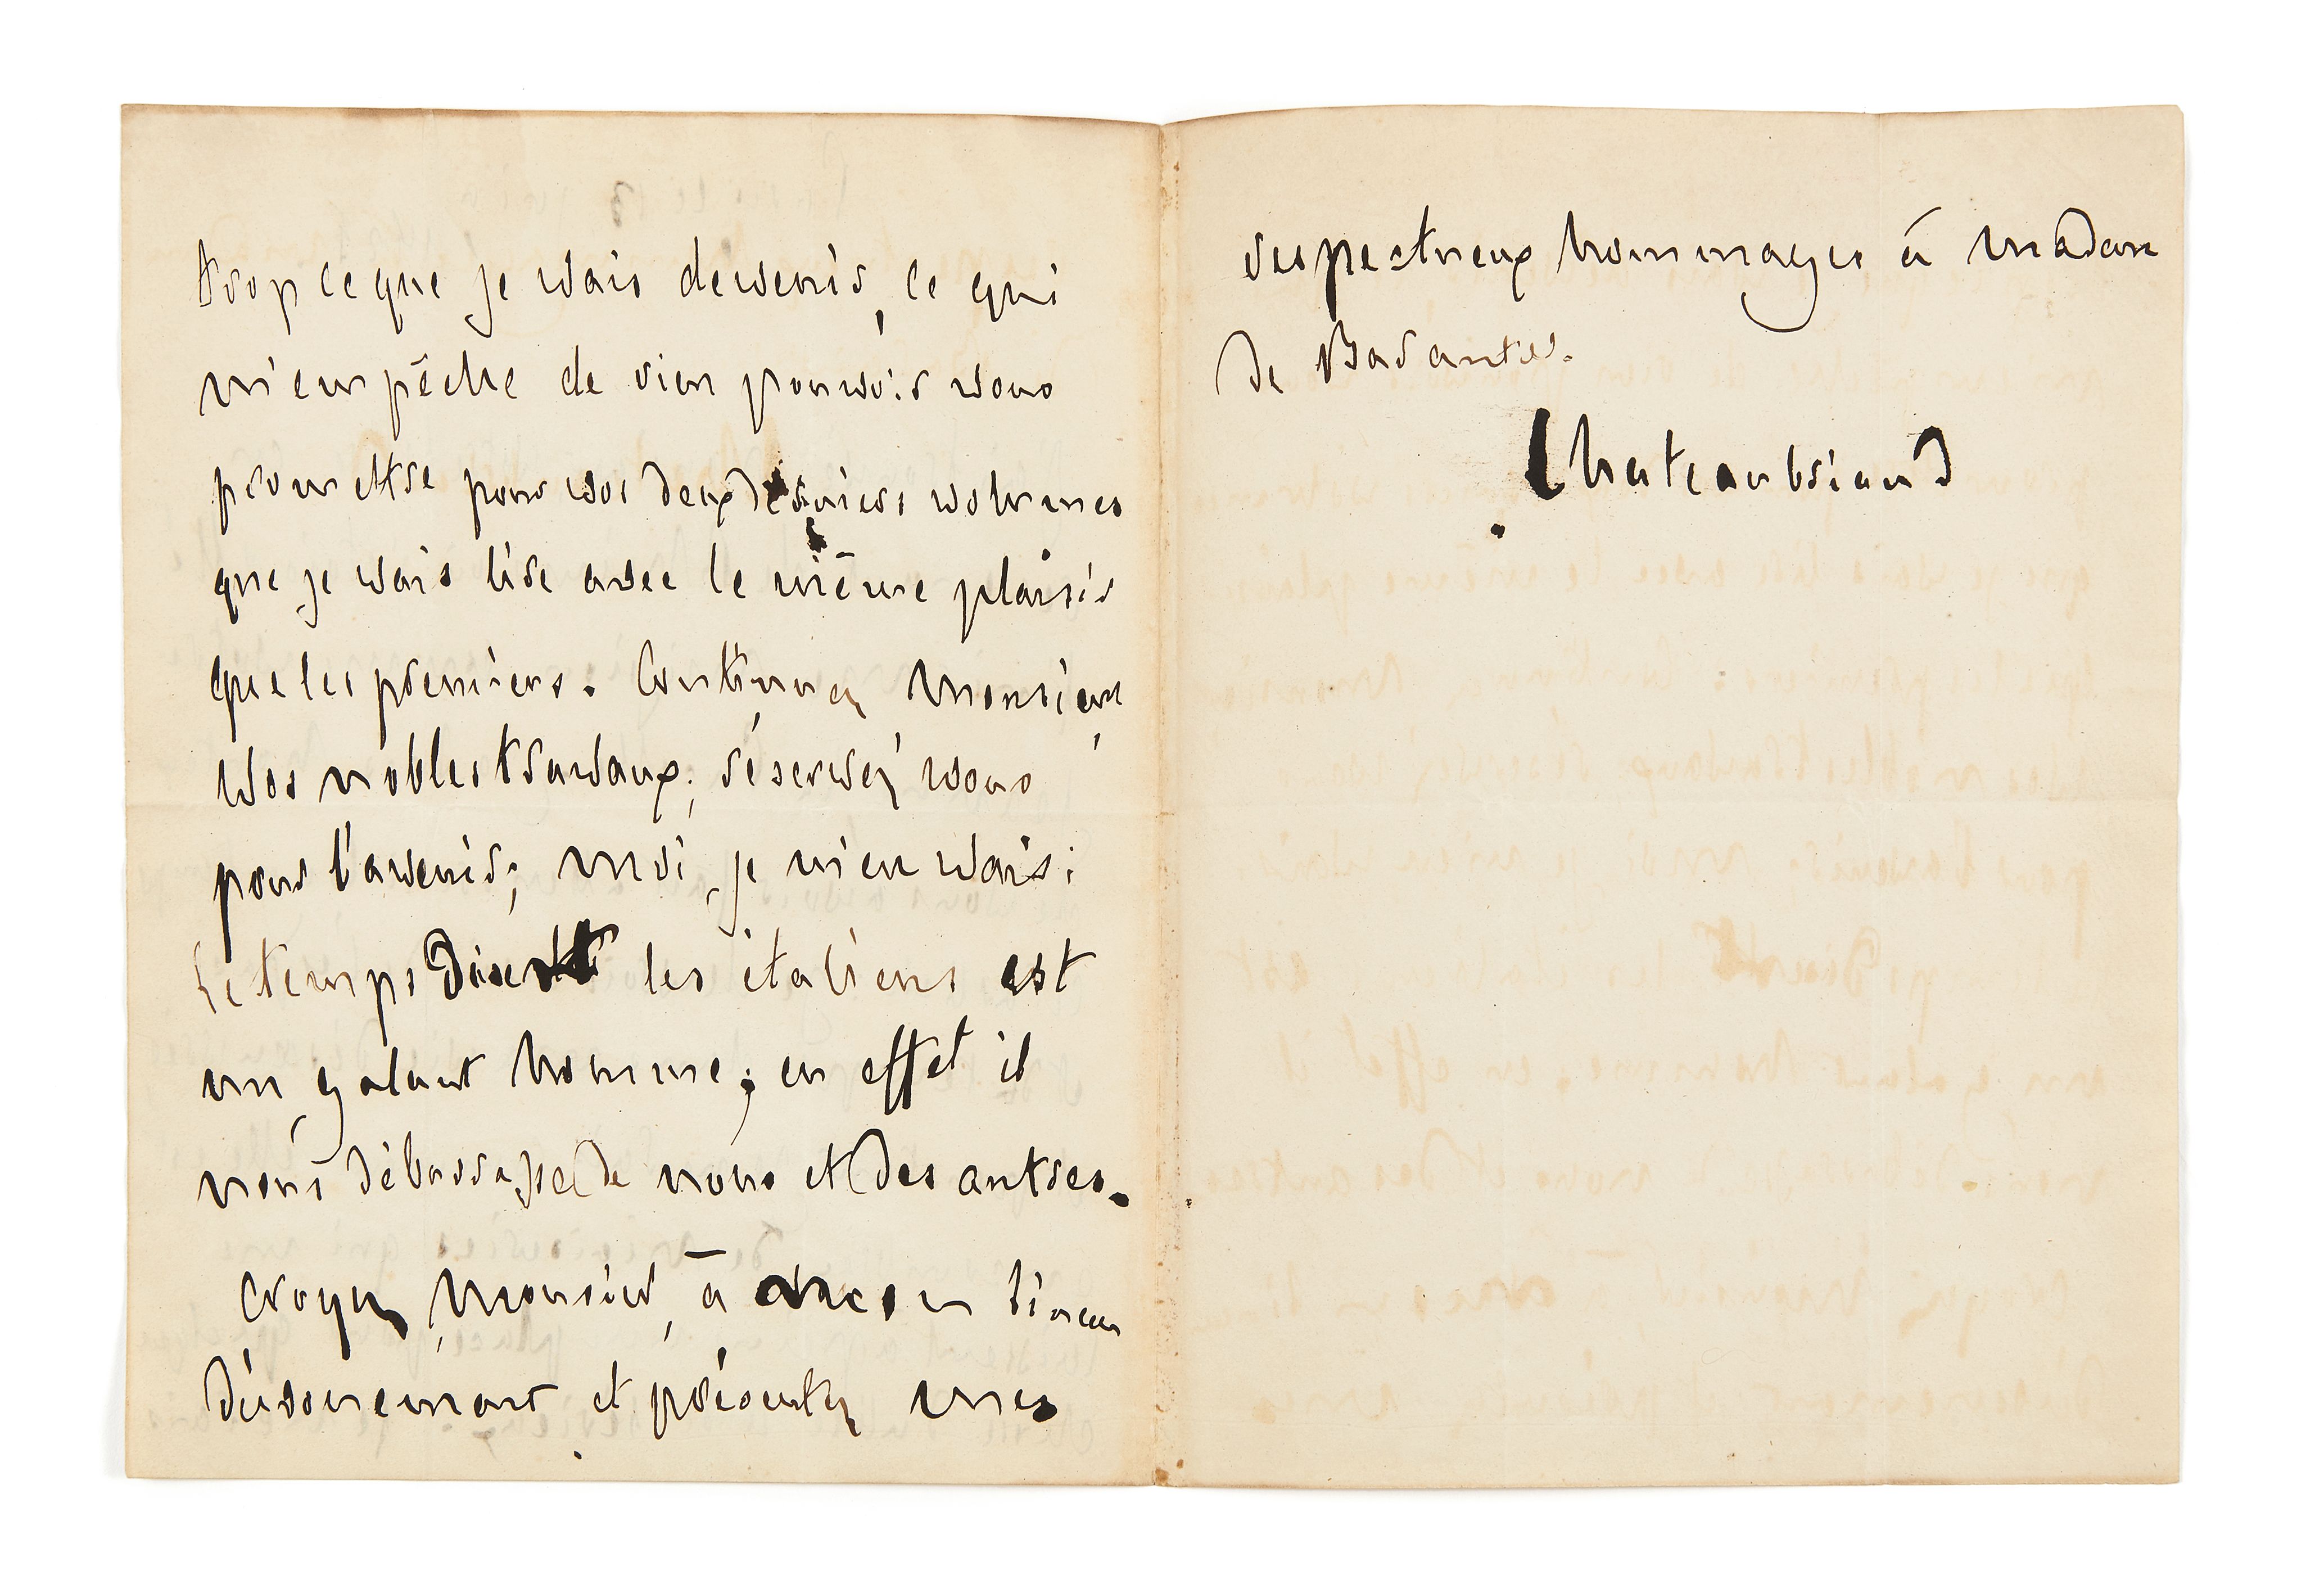 trop ce que je vais devenir, ce qui
m'empêche de rien pouvoir vous
promettre pour vos deux derniers volumes
que je vais lire avec le même plaisir
que les premiers. Continuez, Monsieur,
vos nobles travaux; réservez vous
pour l'avenir; moi, je m'en vais:
le temps disent les italiens est
un galant homme; en effet il
nous débarrasse de nous et des autres.
Croyez, Monsieur, à mon sincère
dévouement et présentez mes
respectueux hommages à madame
de Barante.
Chateaubriand